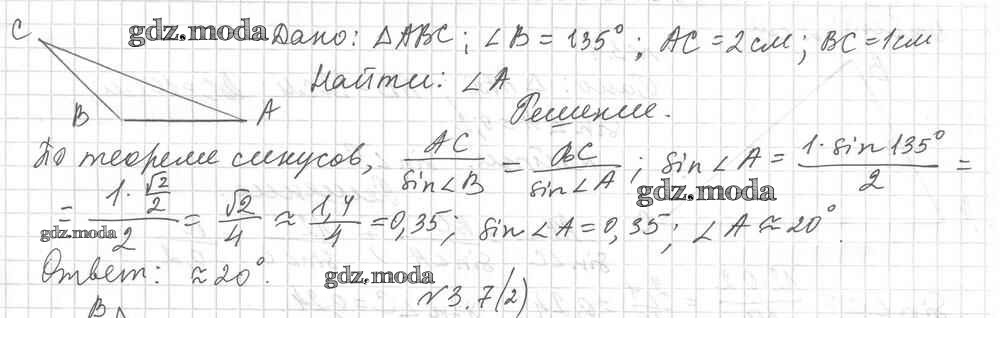 C gdz.moda Дано: △ABC; ∠B = 135°; AC = 2 см; BC = 1 см
Найти: ∠A
B A Решение.
По теореме синусов, AC/sin∠B = BC/sin∠A; sin∠A = 1·sin135°/2 =
gdz.moda
= 1·√2/2/2 = √2/4 ≈ 1,4/4 = 0,35; sin∠A = 0,35; ∠A ≈ 20°.
gdz.moda
Ответ: ≈ 20°. gdz.moda
№3.7(2)
B